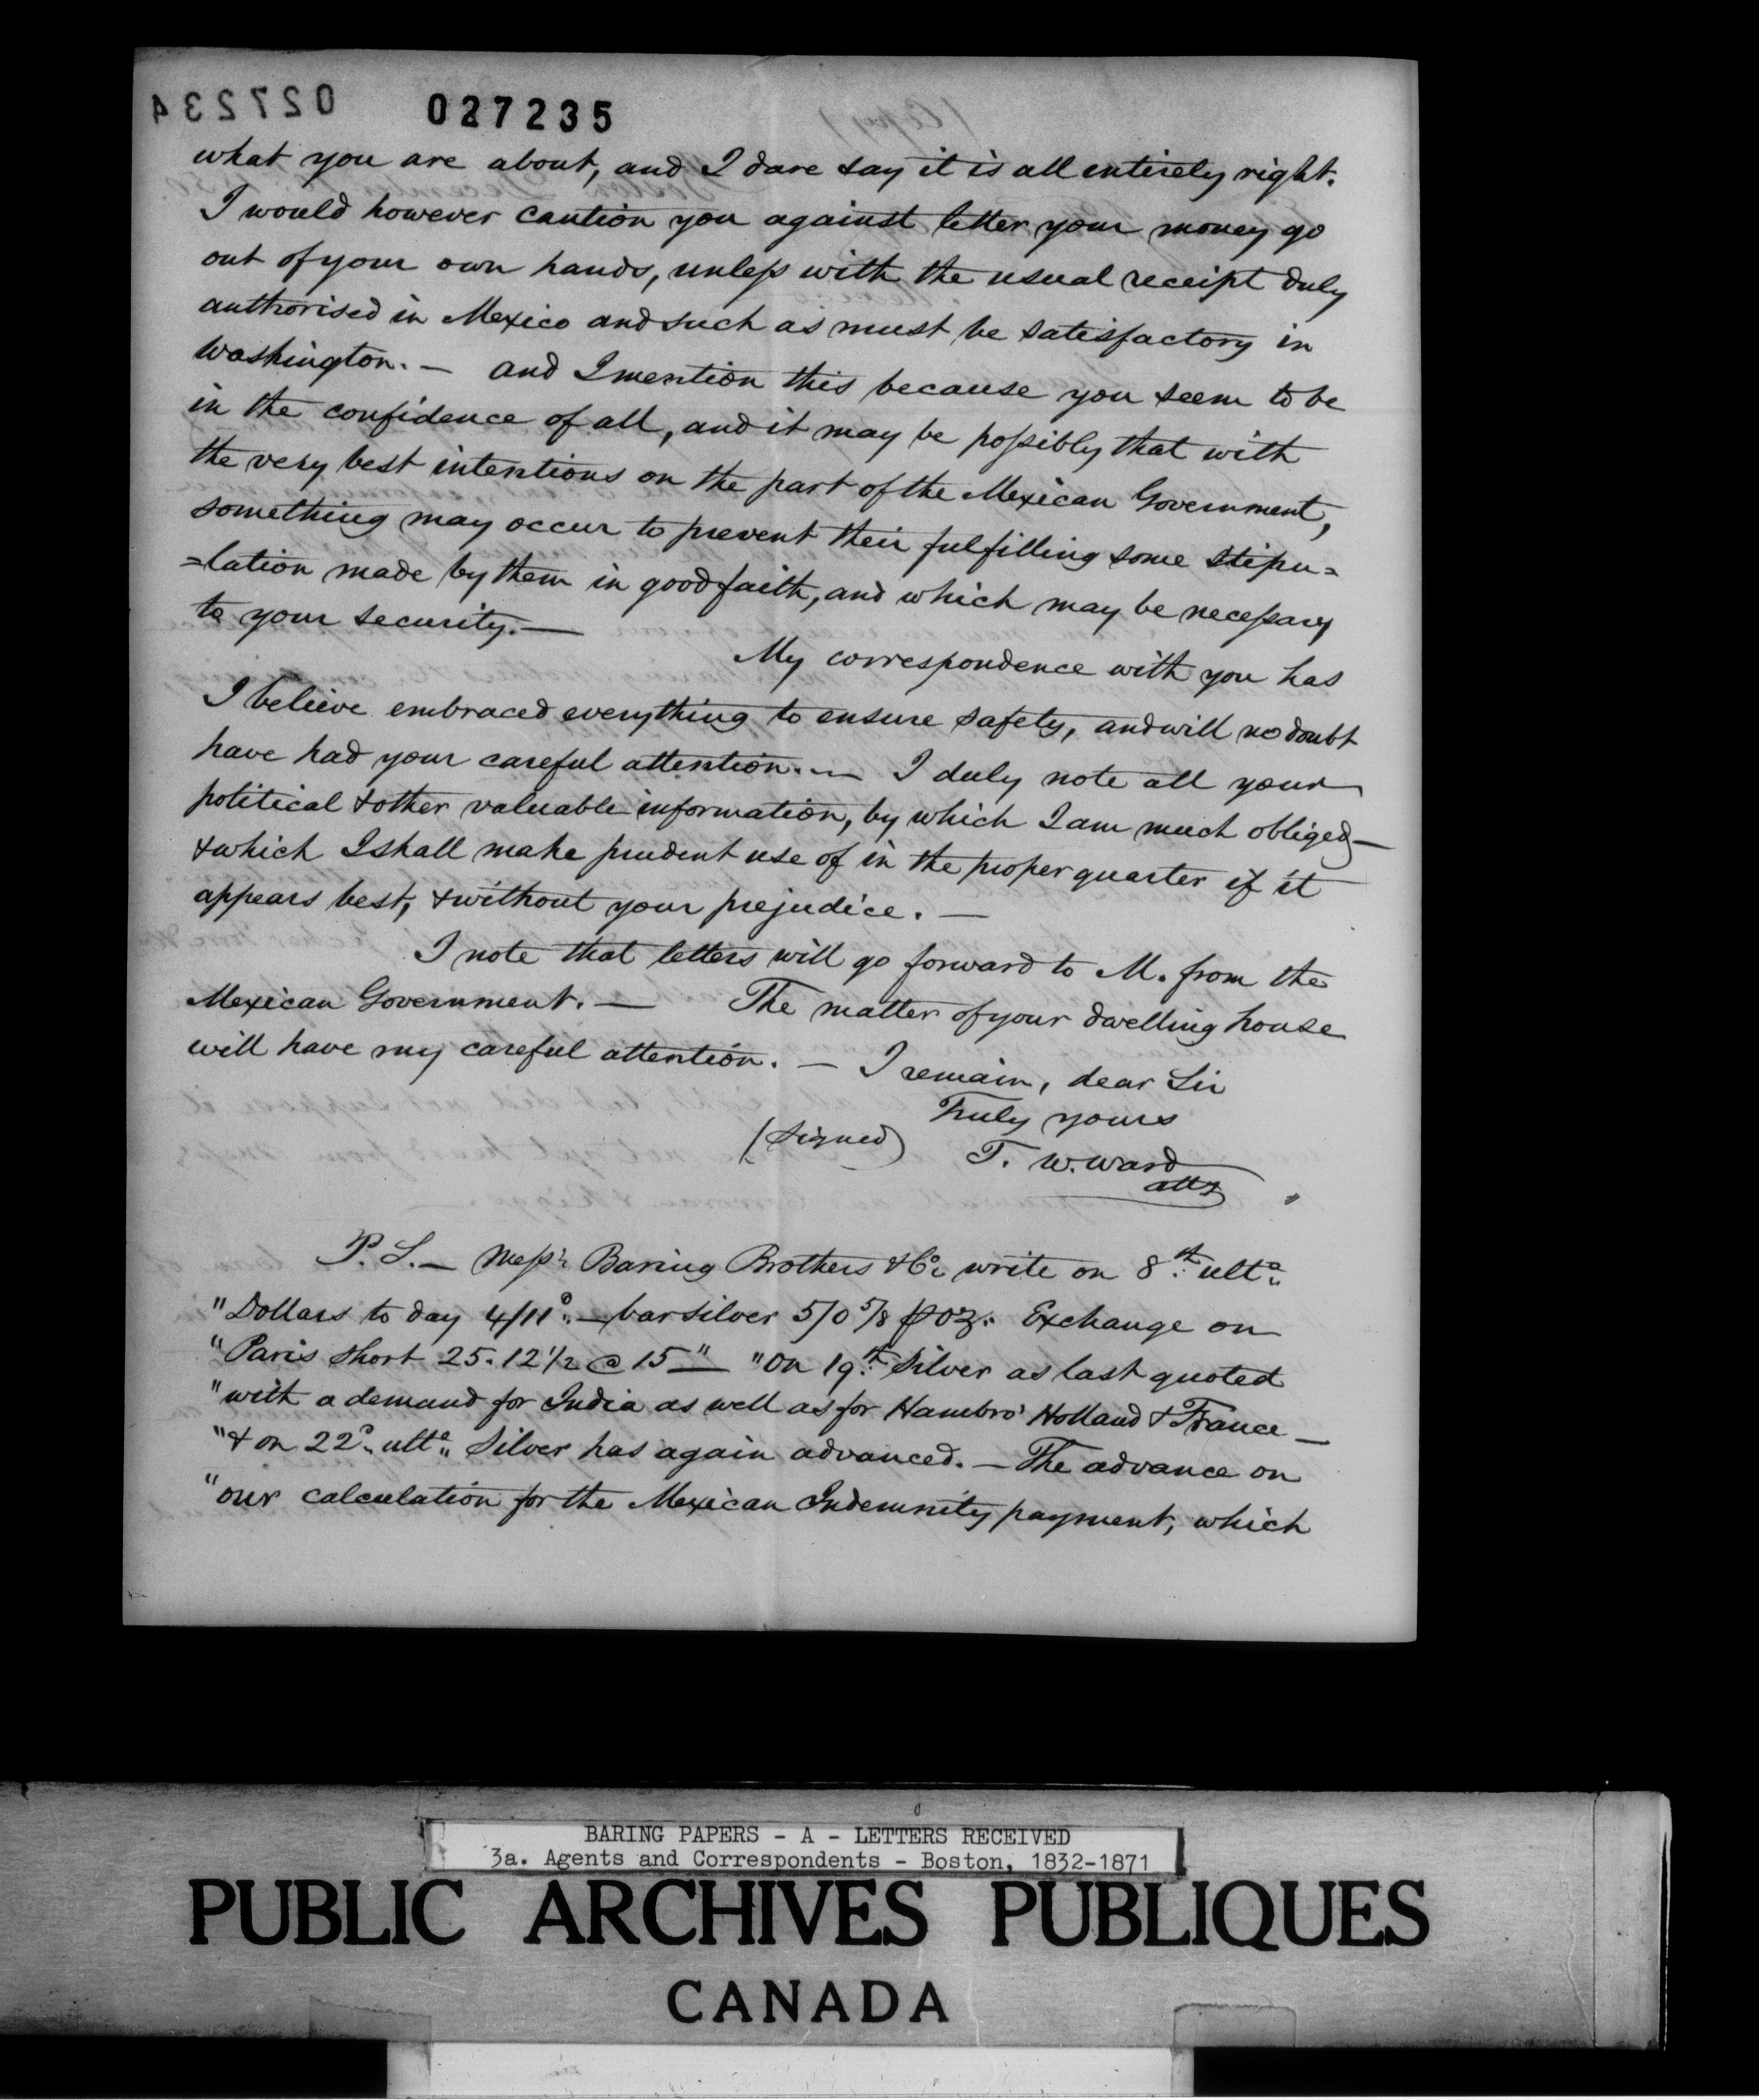 027234 027235
what you are about, and I dare say it is all entirely right.
I would however caution you against letter your money go
out of your own hands, unless with the usual receipt duly
authorised in Mexico and such as must be satisfactory in
Washington. — and I mention this because you seem to be
in the confidence of all, and it may be possibly that with
the very best intentions on the part of the Mexican Government,
something may occur to prevent their fulfilling some stipu=
=lation made by them in good faith, and which may be necessary
to your security. —
My correspondence with you has
I believe embraced everything to ensure safety, and will no doubt
have had your careful attention. — I duly note all your
political & other valuable information, by which I am much obliged —
& which I shall make prudent use of in the proper quarter if it
appears best, & without your prejudice. —
I note that letters will go forward to M. from the
Mexican Government. — The matter of your dwelling house
will have my careful attention. — I remain, dear Sir
Truly yours
(signed) T. W. Ward
atty
P.S. — Messrs Baring Brothers & Co. write on 8th ulto
"Dollars to day 4/11d. — bar silver 5/0 5/8 p oz. Exchange on
"Paris short 25.12 1/2 @ 15 — " "On 19th Silver as last quoted
"with a demand for India as well as for Hambro' Holland & France —
"& on 22d ulto Silver has again advanced. — The advance on
"our calculation for the Mexican Indemnity payment, which
BARING PAPERS - A - LETTERS RECEIVED
3a. Agents and Correspondents - Boston, 1832-1871
PUBLIC ARCHIVES PUBLIQUES
CANADA